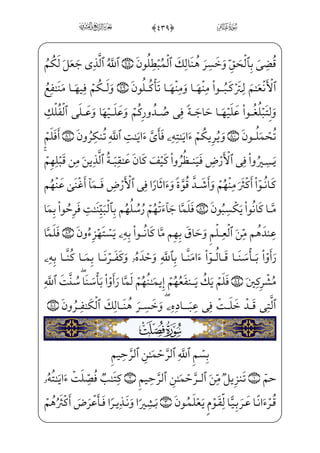 سُورَةُ غَافِرٍ ﴿٤٣٩﴾ الجُزْءُ الرَّابِعُ وَالعِشْرُونَ
قُضِيَ بِٱلْحَقِّ وَخَسِرَ هُنَالِكَ ٱلْمُبْطِلُونَ ٧٨ ٱللَّهُ ٱلَّذِى جَعَلَ لَكُمُ
ٱلْأَنْعَٰمَ لِتَرْكَبُوا۟ مِنْهَا وَمِنْهَا تَأْكُلُونَ ٧٩ وَلَكُمْ فِيهَا مَنَٰفِعُ
وَلِتَبْلُغُوا۟ عَلَيْهَا حَاجَةً فِى صُدُورِكُمْ وَعَلَيْهَا وَعَلَى ٱلْفُلْكِ
تُحْمَلُونَ ٨٠ وَيُرِيكُمْ ءَايَٰتِهِۦ فَأَىَّ ءَايَٰتِ ٱللَّهِ تُنكِرُونَ ٨١ أَفَلَمْ
يَسِيرُوا۟ فِى ٱلْأَرْضِ فَيَنظُرُوا۟ كَيْفَ كَانَ عَٰقِبَةُ ٱلَّذِينَ مِن قَبْلِهِمْ
كَانُوٓا۟ أَكْثَرَ مِنْهُمْ وَأَشَدَّ قُوَّةً وَءَاثَارًا فِى ٱلْأَرْضِ فَمَآ أَغْنَىٰ عَنْهُم
مَّا كَانُوا۟ يَكْسِبُونَ ٨٢ فَلَمَّا جَآءَتْهُمْ رُسُلُهُم بِٱلْبَيِّنَٰتِ فَرِحُوا۟ بِمَا
عِندَهُم مِّنَ ٱلْعِلْمِ وَحَاقَ بِهِم مَّا كَانُوا۟ بِهِۦ يَسْتَهْزِءُونَ ٨٣ فَلَمَّا
رَأَوْا۟ بَأْسَنَا قَالُوٓا۟ ءَامَنَّا بِٱللَّهِ وَحْدَهُۥ وَكَفَرْنَا بِمَا كُنَّا بِهِۦ
مُشْرِكِينَ ٨٤ فَلَمْ يَكُ يَنفَعُهُمْ إِيمَٰنُهُمْ لَمَّا رَأَوْا۟ بَأْسَنَا سُنَّتَ ٱللَّهِ
ٱلَّتِى قَدْ خَلَتْ فِى عِبَادِهِۦ وَخَسِرَ هُنَالِكَ ٱلْكَٰفِرُونَ ٨٥
سُورَةُ فُصِّلَتْ
بِسْمِ ٱللَّهِ ٱلرَّحْمَٰنِ ٱلرَّحِيمِ
حمٓ ١ تَنزِيلٌ مِّنَ ٱلرَّحْمَٰنِ ٱلرَّحِيمِ ٢ كِتَٰبٌ فُصِّلَتْ ءَايَٰتُهُۥ
قُرْءَانًا عَرَبِيًّا لِّقَوْمٍ يَعْلَمُونَ ٣ بَشِيرًا وَنَذِيرًا فَأَعْرَضَ أَكْثَرُهُمْ